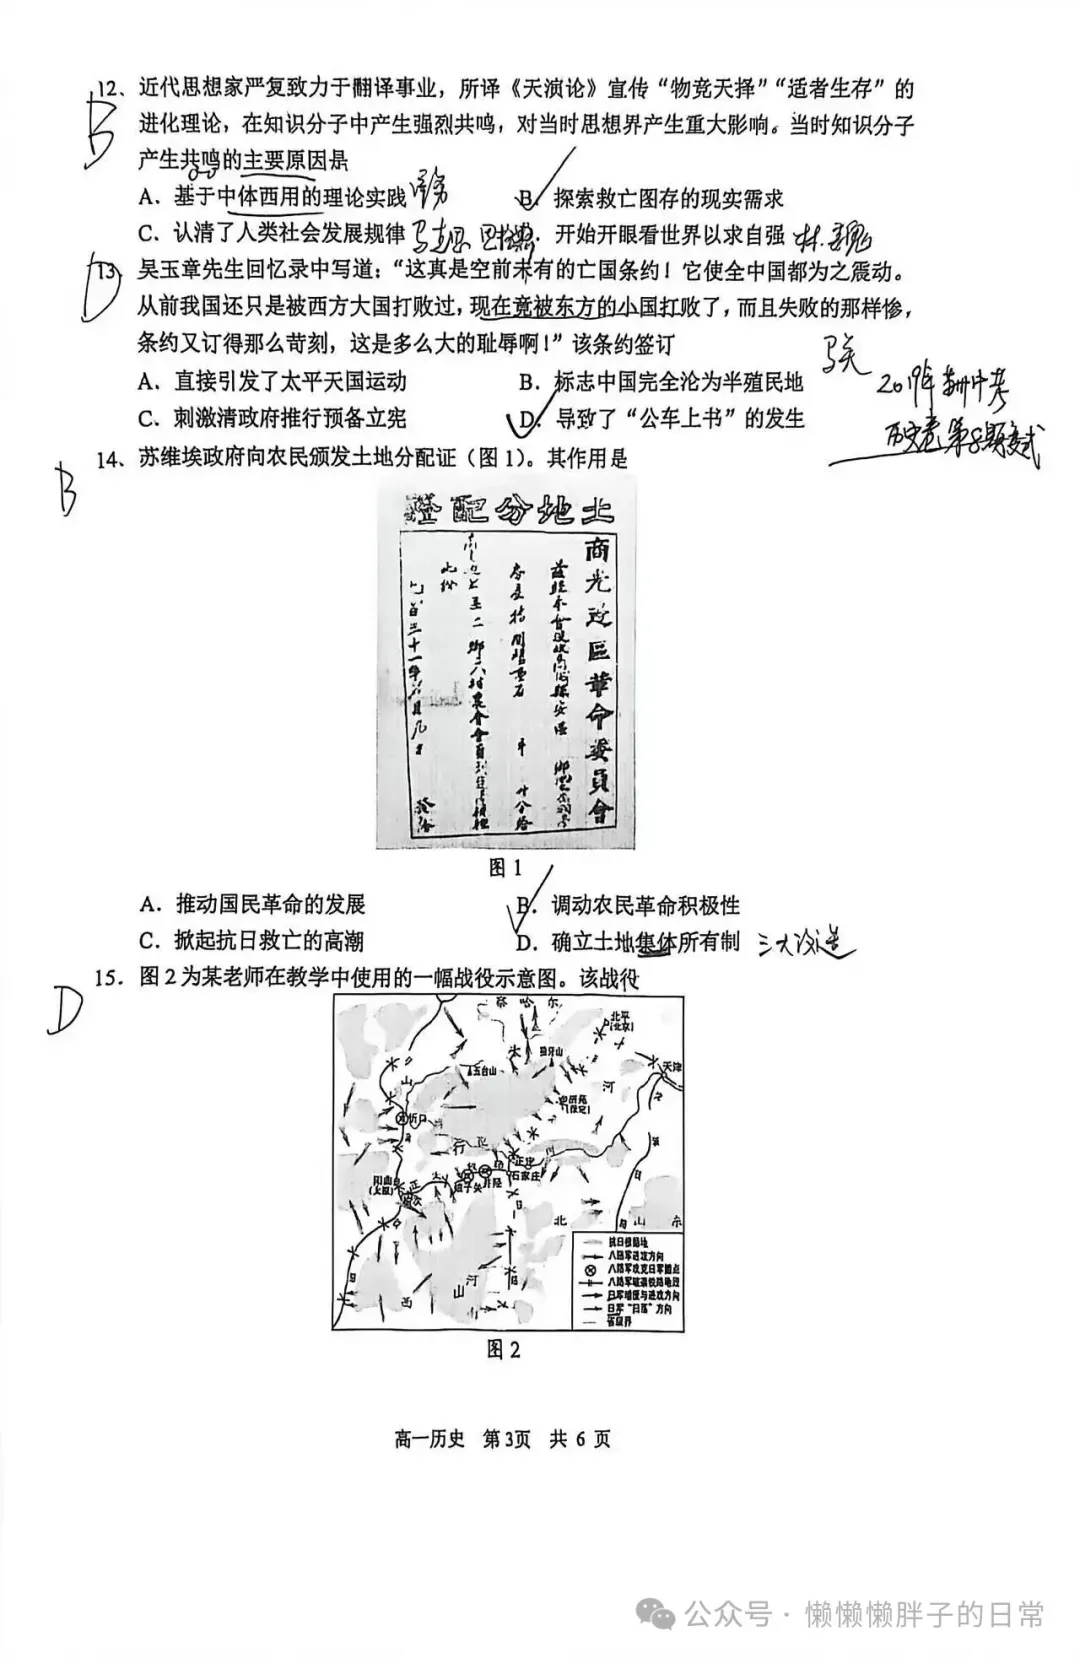 12、近代思想家严复致力于翻译事业，所译《天演论》宣传“物竞天择”“适者生存”的
B
进化理论，在知识分子中产生强烈共鸣，对当时思想界产生重大影响。当时知识分子
产生共鸣的主要原因是
A．基于中体西用的理论实践
B．探索救亡图存的现实需求
C．认清了人类社会发展规律
．开始开眼看世界以求自强
13、吴玉章先生回忆录中写道：“这真是空前未有的亡国条约！它使全中国都为之震动。
D
从前我国还只是被西方大国打败过，现在竟被东方的小国打败了，而且失败的那样惨，
条约又订得那么苛刻，这是多么大的耻辱啊！”该条约签订
马关
A．直接引发了太平天国运动
B．标志中国完全沦为半殖民地
2019年
C．刺激清政府推行预备立宪
D．导致了“公车上书”的发生
14、苏维埃政府向农民颁发土地分配证（图1）。其作用是
B
土地分配證
商光边區革命委員會
图1
A．推动国民革命的发展
B．调动农民革命积极性
C．掀起抗日救亡的高潮
D．确立土地集体所有制
三大改造
15．图2为某老师在教学中使用的一幅战役示意图。该战役
D
察哈尔
北平
(北京)
太
狼牙山
五台山
天津
山
河
(保定)
忻口
行
正定
石家庄
井陉
娘子关
阳曲
(太原)
北
山东
山
河
西
抗日根据地
八路军进攻方向
八路军攻克日军据点
八路军破袭铁路地段
日军增援与进攻方向
日军“扫荡”方向
省区界
图2
高一历史 第3页 共6页
公众号·懒懒懒胖子的日常